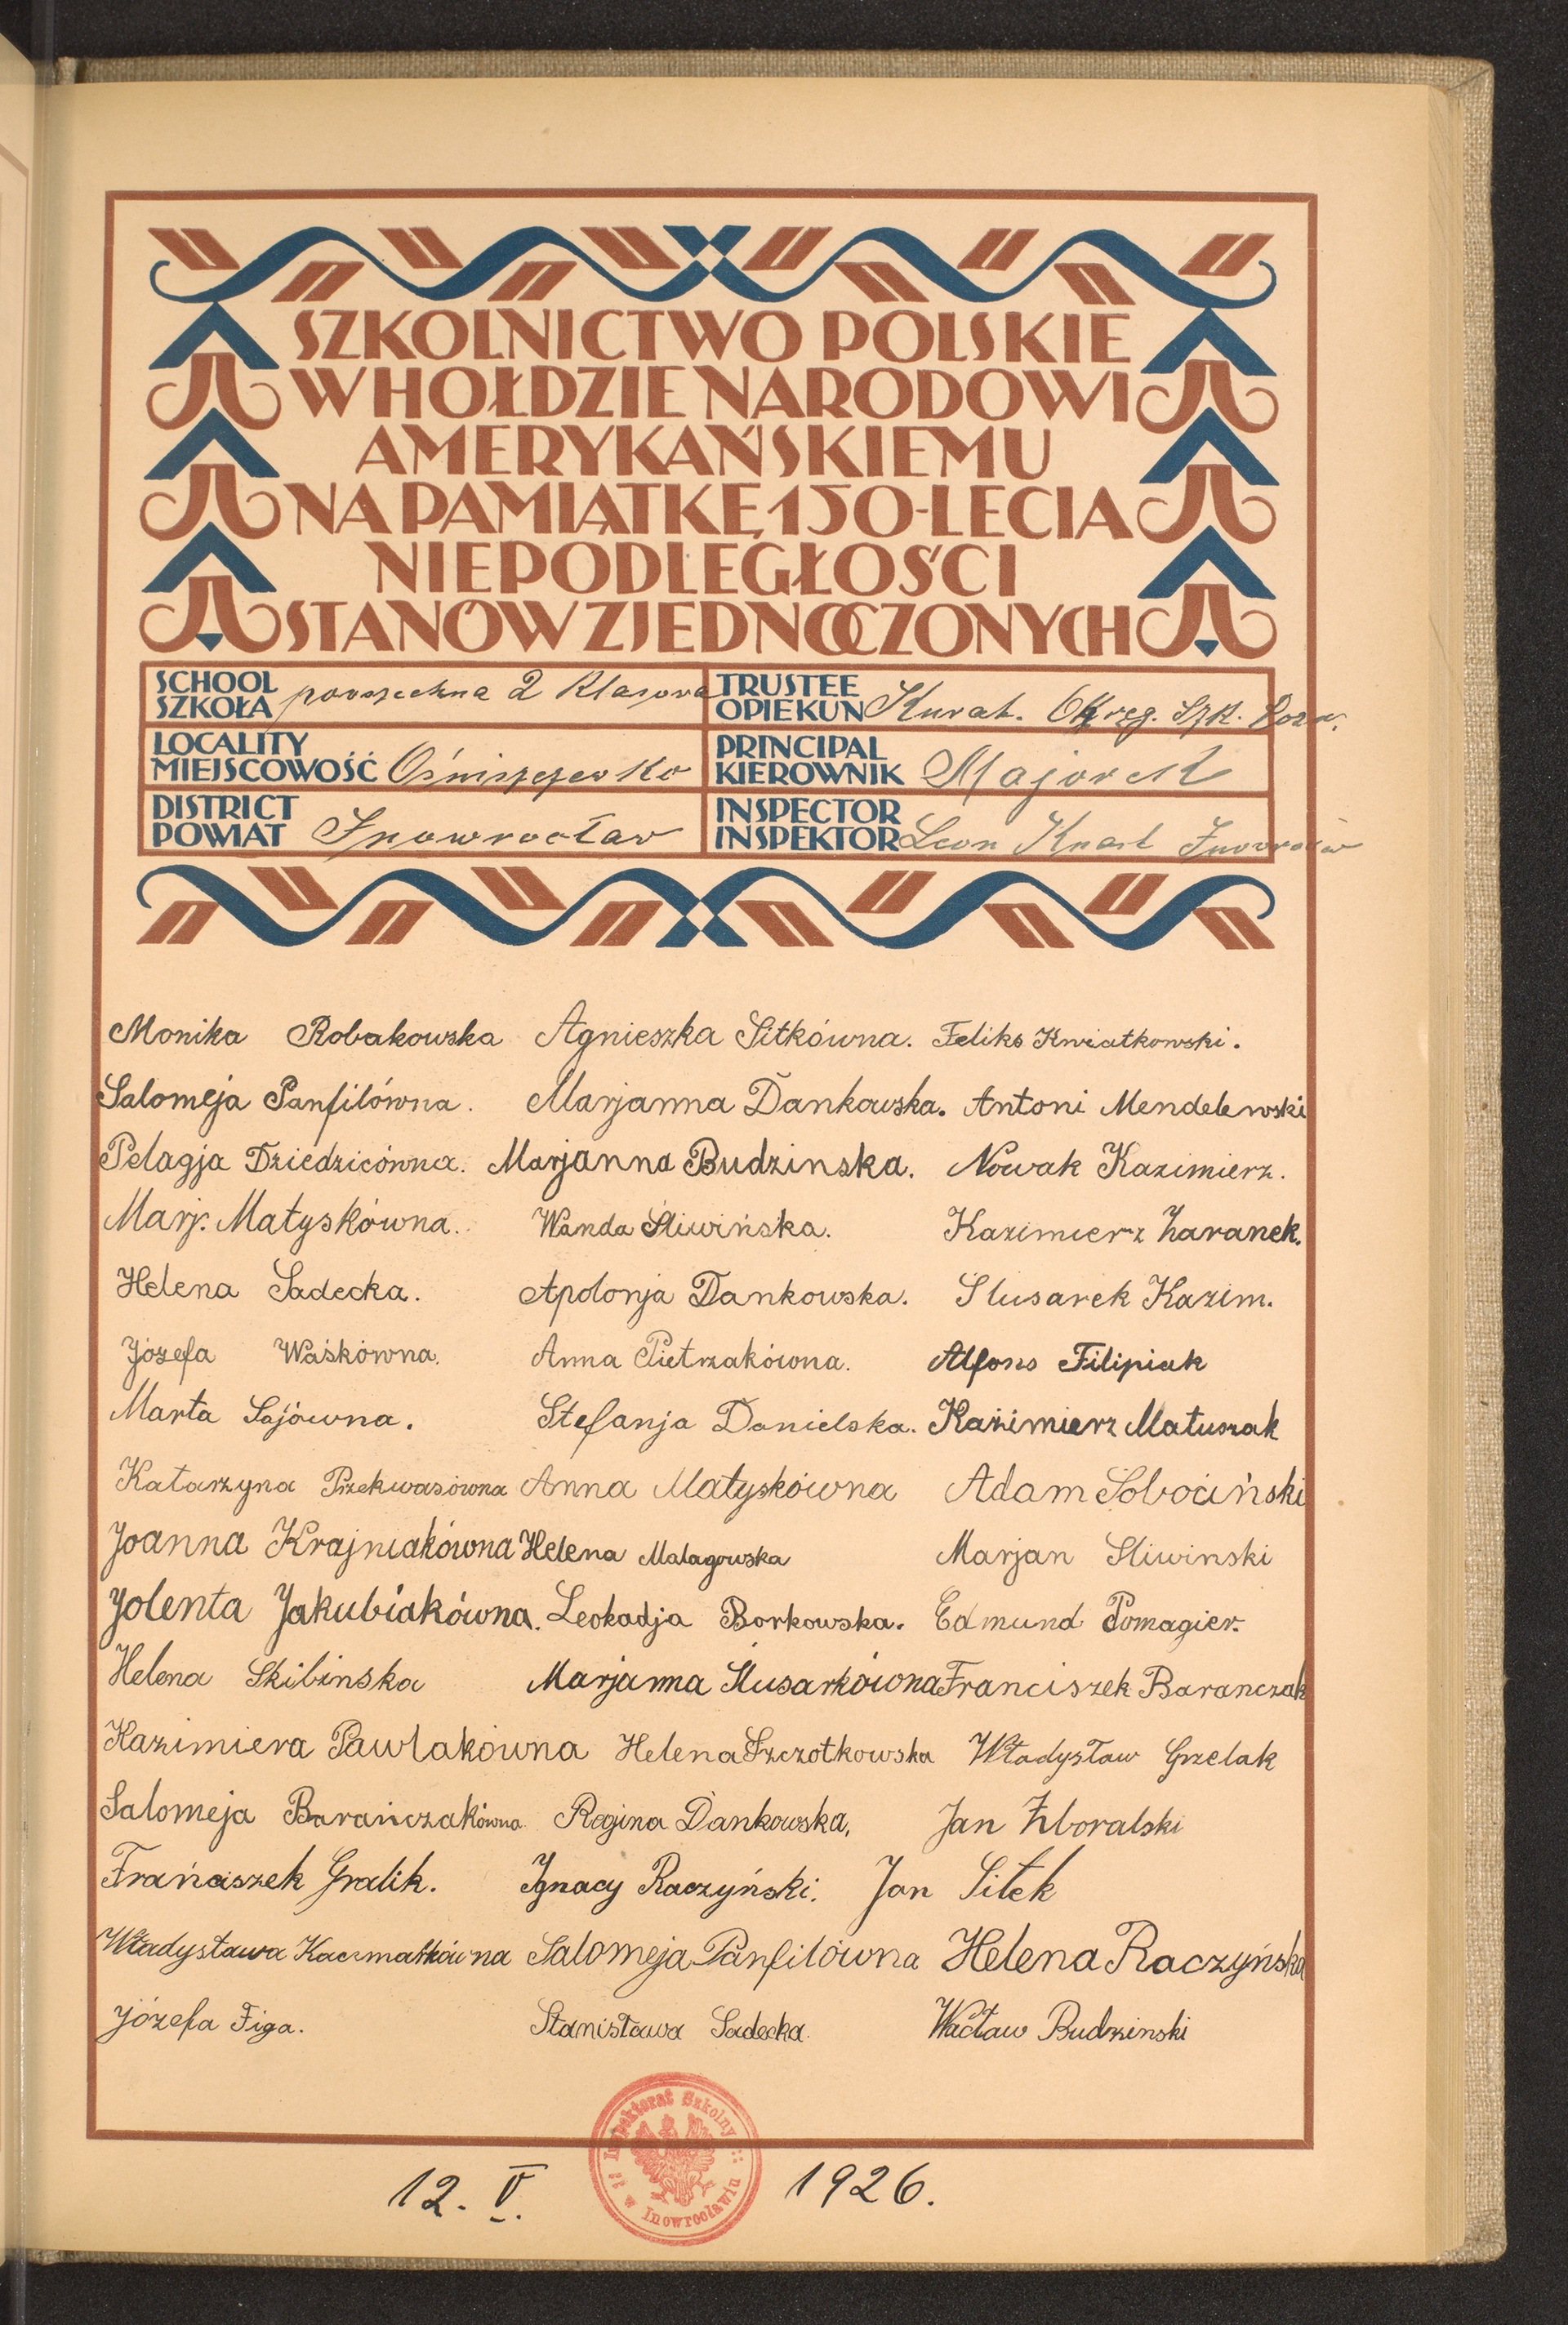 SZKOLNICTWO POLSKIE
W HOŁDZIE NARODOWI
AMERYKAŃSKIEMU
NA PAMIĄTKĘ 150-LECIA
NIEPODLEGŁOŚCI
STANÓW ZJEDNOCZONYCH
SCHOOL
SZKOŁA powszechna 2 klasowa
TRUSTEE
OPIEKUN Kurat. Okręg. Szk. Pozn.
LOCALITY
MIEJSCOWOŚĆ Ośniszczewko
PRINCIPAL
KIEROWNIK Majorek
DISTRICT
POWIAT Inowrocław
INSPECTOR
INSPEKTOR Leon Knast
Monika Robakowska Agnieszka Sitkówna. Feliks Kwiatkowski.
Salomeja Panfilówna. Marjanna Dankowska. Antoni Mendelewski
Pelagja Dziedzicówna. Marjanna Budzinska. Nowak Kazimierz.
Marj. Matyskówna. Wanda Śliwińska. Kazimierz Zaranek.
Helena Sadecka. Apolonja Dankowska. Slusarek Kazim.
Józefa Waśkówna. Anna Pietrzakówna. Alfons Filipiak
Marta Sajówna. Stefanja Danielska. Kazimierz Matuszak
Katarzyna Przekwasówna Anna Matyskówna Adam Sobociński
Joanna Krajniakówna Helena Malagowska Marjan Sliwinski
Jolenta Jakubiakówna. Leokadja Borkowska. Edmund Pomagier.
Helena Skibinska Marjanna Slusarkówna Franciszek Baranczak
Kazimiera Pawlakówna Helena Szczotkowska Władysław Grzelak
Salomeja Barańczakówna Regina Dankowska, Jan Zboralski
Franciszek Gralik. Ignacy Raczyński. Jan Sitek
Władysława Kaczmarkówna Salomeja Panfilówna Helena Raczyńska
Józefa Figa. Stanisława Sadecka. Wacław Budzinski
Inspektorat Szkolny w Inowrocławiu
12. V. 1926.